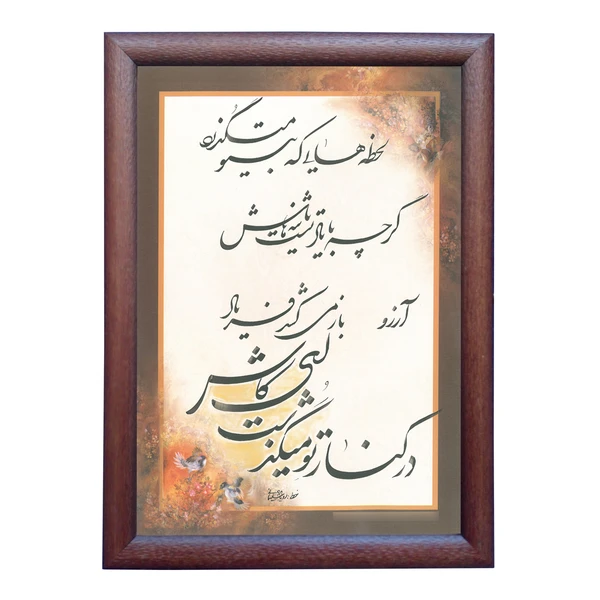 لحظه هایی که بیتو میگذرد
گرچه با یاد تست ثانیه هایش
آرزو باز می کشد فریاد
ای کاش
در کنار تو میگذشت